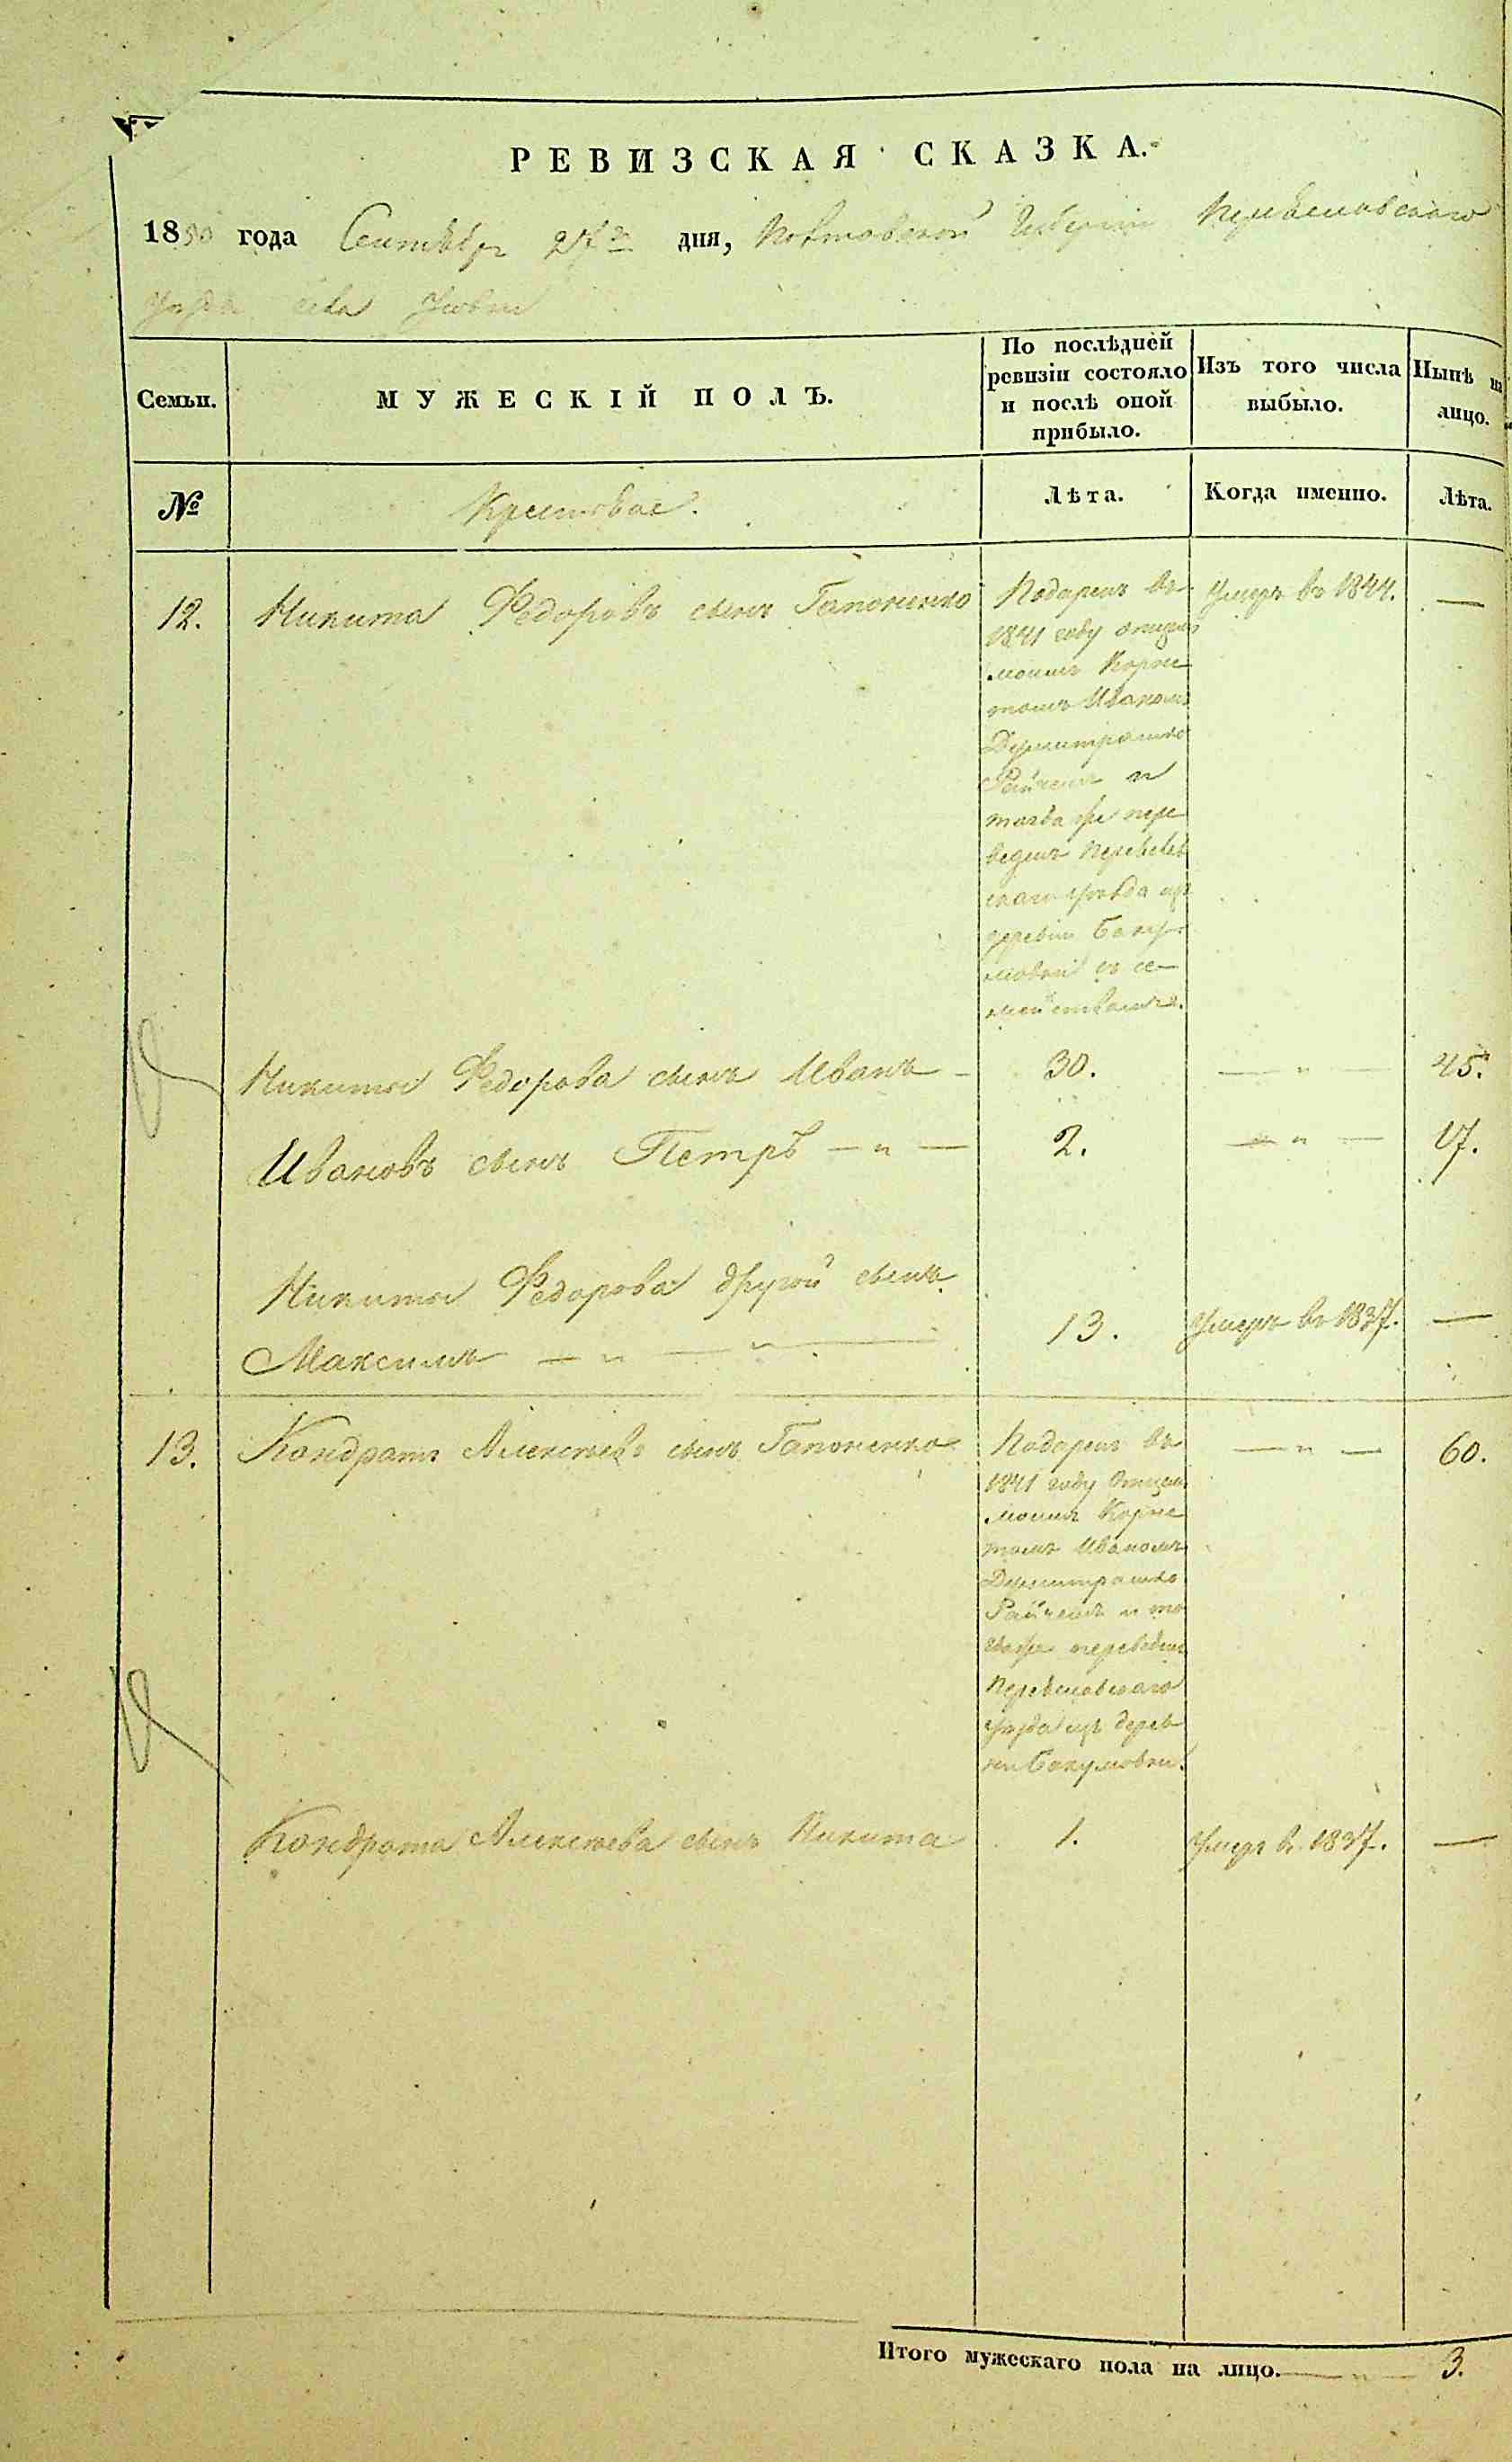 РЕВИЗСКАЯ СКАЗКА.
1850 года Сентября 27го дня, Полтавской Губернiи
уезда села
Семьи.
МУЖЕСКIЙ ПОЛЪ.
По послѣдней
ревизiи состояло
и послѣ оной
прибыло.
Изъ того числа
выбыло.
Нынѣ на
лицо.
№
Лѣта.
Когда именно.
Лѣта.
12.
Никита Федоровъ сынъ Гапоненко
Подаренъ въ
1841 году отцемъ
моимъ Корне
томъ Иваномъ
Дмитрашко
Райчемъ и
тогда же пере
веденъ
скаго уезда изъ
деревни Баку
мовки съ се
мействомъ.
Умеръ въ 1844.
—
Никиты Федорова сынъ Иванъ —
30.
— „ —
45.
Ивановъ сынъ Петръ — „ —
2.
— „ —
17.
Никиты Федорова другой сынъ
Максимъ — „ — „ —
13.
Умеръ въ 1837.
—
13.
Кондратъ Алексѣевъ сынъ Гапоненко
Подаренъ въ
1841 году Отцемъ
моимъ Корне
томъ Иваномъ
Дмитрашко
Райчемъ и то
гдаже переведенъ
уезда изъ дерев
ни Бакумовки.
— „ —
60.
Кондрата Алексѣева сынъ Никита
1.
Умеръ въ 1837.
—
Итого мужескаго пола на лицо. — „ — 3.